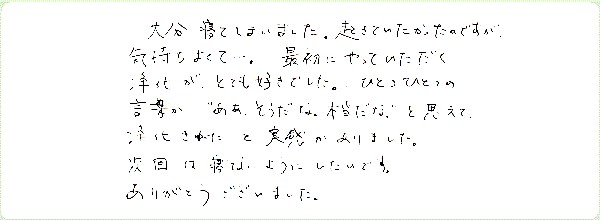 大分寝てしまいました。起きていたかったのですが、
気持ちよくて…。最初にやっていただく
浄化が、とても好きでした。ひとつひとつの
言葉が "ああ、そうだな。本当だな。" と思えて、
浄化された と 実感がありました。
次回は寝ないようにしたいです。
ありがとうございました。